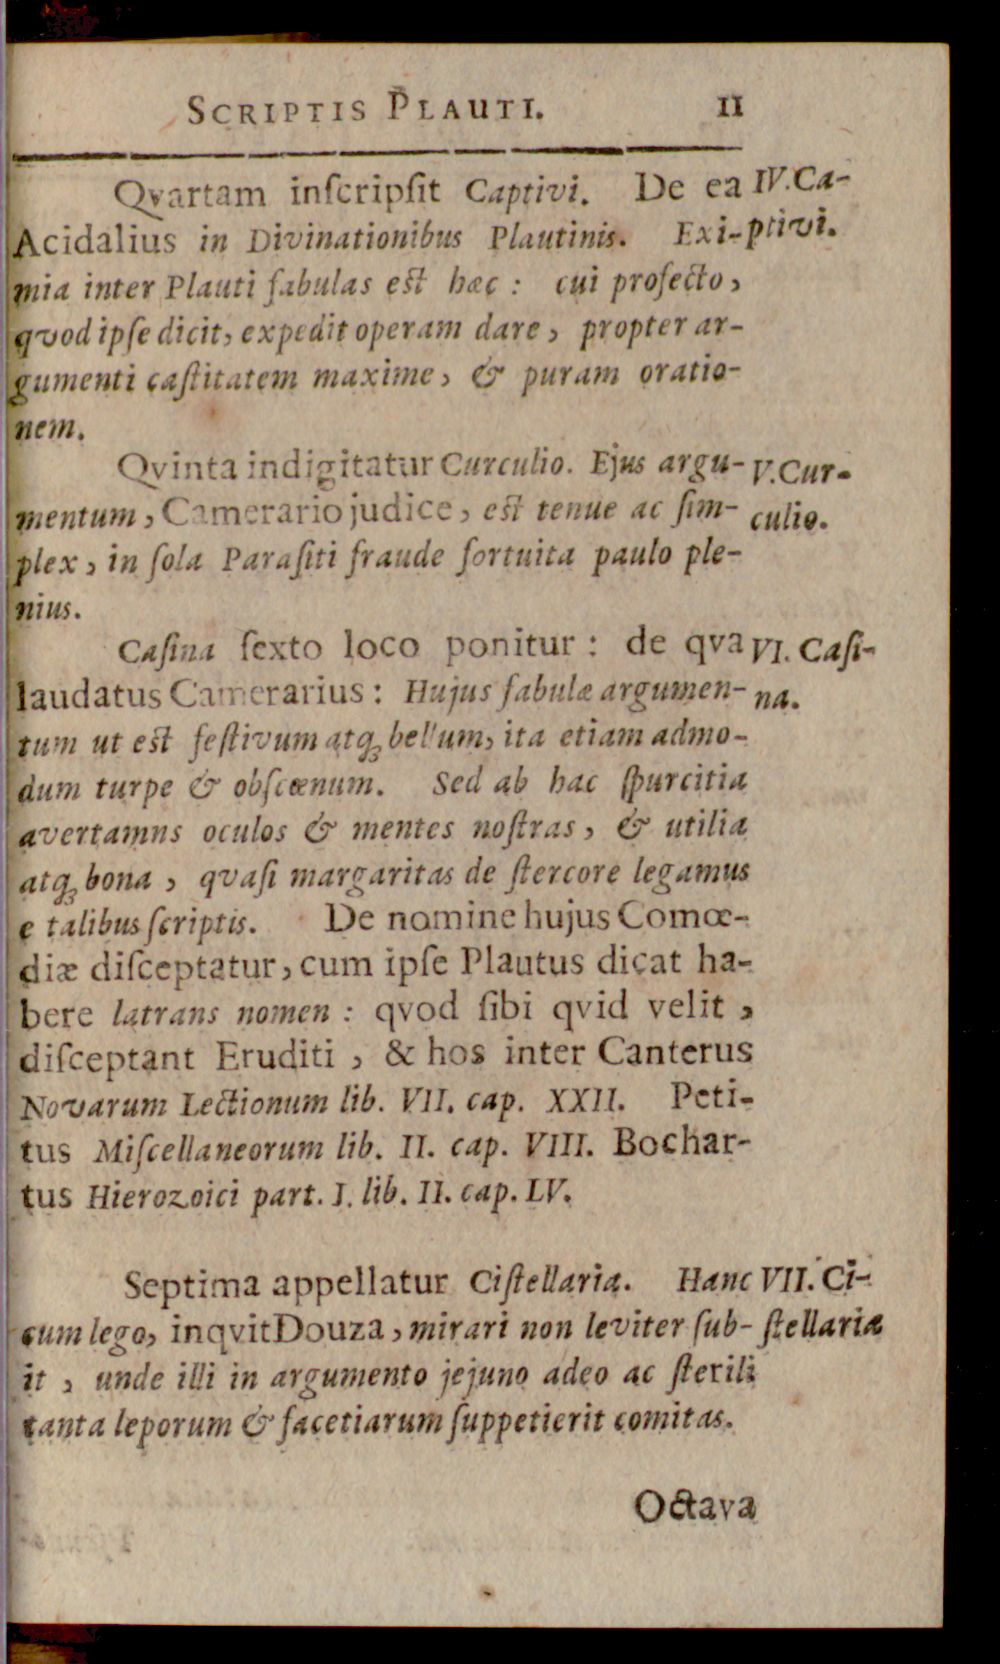 SCRIPTIS PLAUTI. 11
Qvartam inſcripſit Captivi. De ea IV. Ca-
Acidalius in Divinationibus Plautinis. Exi- ptivi.
mia inter Plauti fabulas est hæc : cui profecto,
qvod ipſe dicit, expedit operam dare, propter ar-
gumenti caſtitatem maxime, & puram oratio-
nem.
Qvinta indigitatur Curculio. Ejus argu- V. Cur-
mentum, Camerario judice, est tenue ac ſim- culio.
plex, in ſola Paraſiti fraude fortuita paulo ple-
nius.
Caſina ſexto loco ponitur : de qva VI. Caſi-
laudatus Camerarius : Hujus fabulæ argumen- na.
tum ut est feſtivum atq; bellum, ita etiam admo-
dum turpe & obſcœnum. Sed ab hac ſpurcitia
avertamns oculos & mentes noſtras, & utilia
atq; bona, qvaſi margaritas de ſtercore legamus
e talibus ſcriptis. De nomine hujus Comœ-
diæ diſceptatur, cum ipſe Plautus dicat ha-
bere latrans nomen : qvod ſibi qvid velit,
diſceptant Eruditi, & hos inter Canterus
Novarum Lectionum lib. VII. cap. XXII. Peti-
tus Miſcellaneorum lib. II. cap. VIII. Bochar-
tus Hierozoici part. I. lib. II. cap. LV.
Septima appellatur Ciſtellaria. Hanc VII. Ci-
cum lego, inqvit Douza, mirari non leviter ſub- ſtellaria
it, unde illi in argumento jejuno adeo ac ſterili
tanta leporum & facetiarum ſuppetierit comitas.
Octava